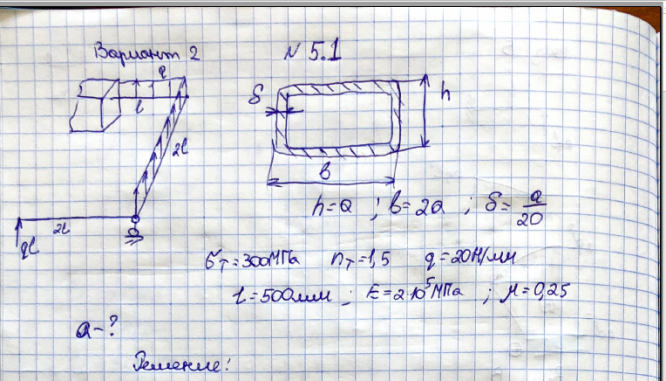 Вариант 2
N 5.1
q
l
2l
2l
ql
δ
h
b
h=a ; b=2a ; δ= a/20
σт=300МПа nт=1,5 q=20Н/мм
l=500мм ; E=2·10⁵МПа ; μ=0,25
a-?
Решение: